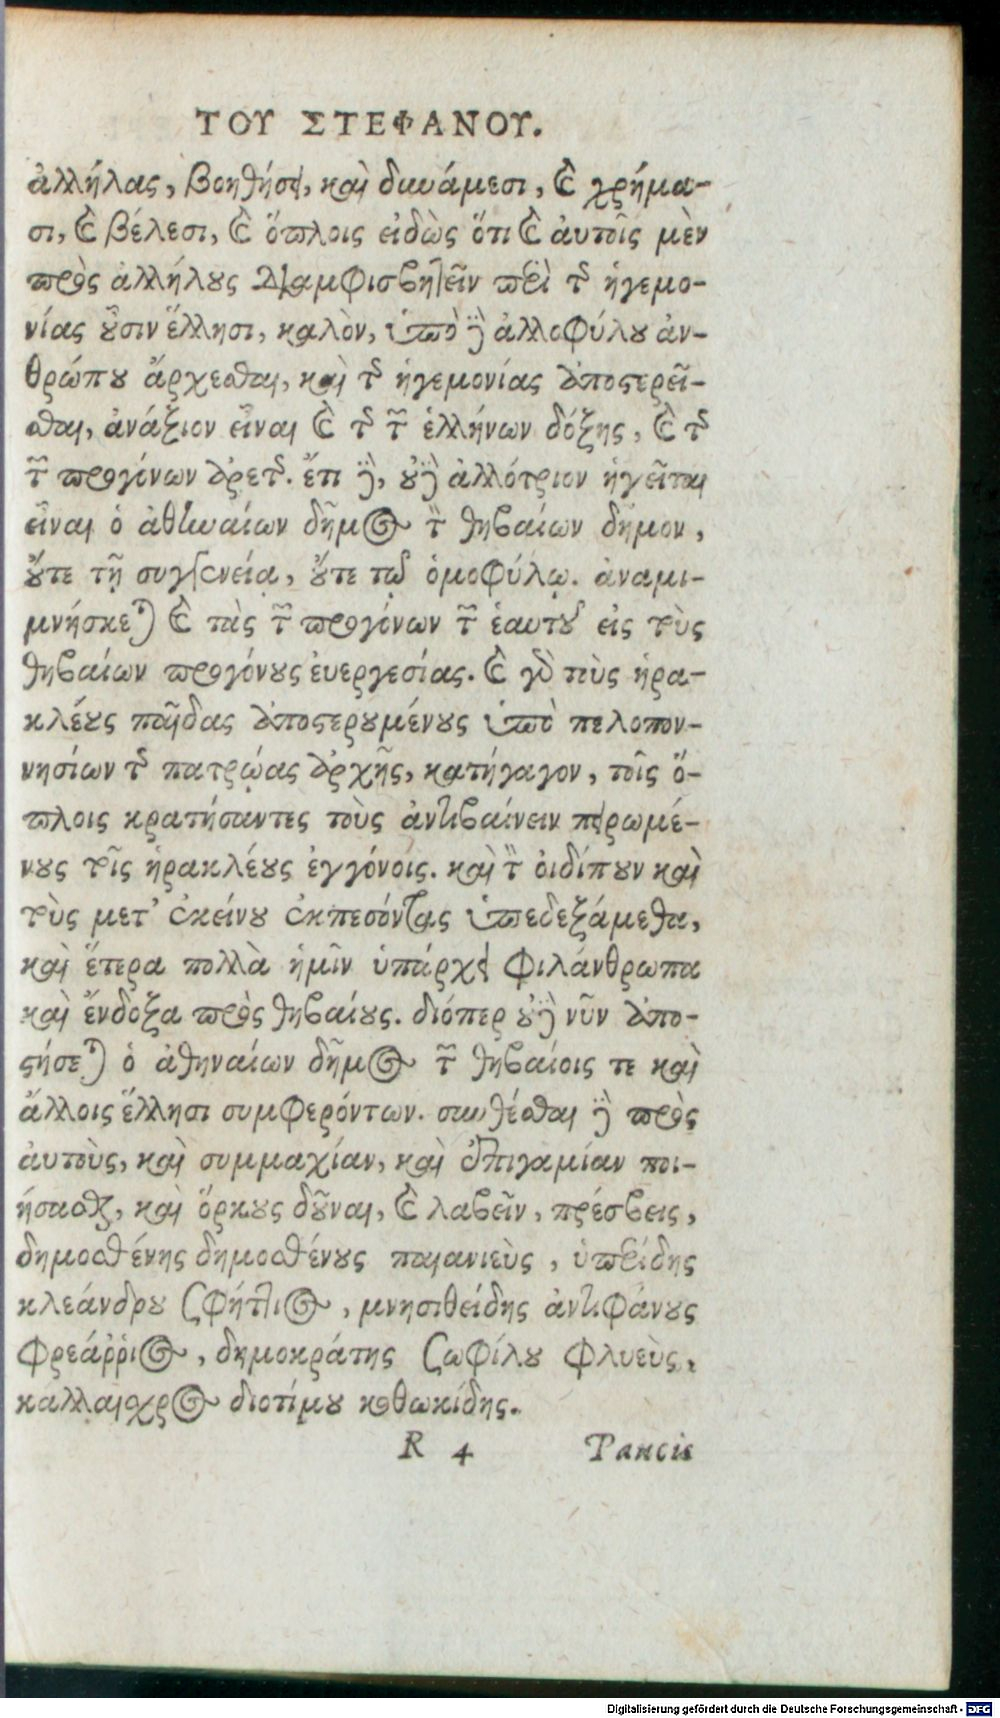 ΤΟΥ ΣΤΕΦΑΝΟΥ.
ἀλλήλας, βοηθήσει, καὶ δυνάμεσι, καὶ χρήμα-
σι, καὶ βέλεσι, καὶ ὅπλοις εἰδὼς ὅτι καὶ ἀυτοῖς μὲν
πρὸς ἀλλήλους διαμφισβητεῖν περὶ τῆς ἡγεμο-
νίας οὖσιν ἕλλησι, καλὸν, ὑπὸ δὲ ἀλλοφύλου ἀν-
θρώπου ἄρχεσθαι, καὶ τῆς ἡγεμονίας ἀποστερεῖ-
σθαι, ἀνάξιον εἶναι καὶ τῆς τῶν ἑλλήνων δόξης, καὶ τῆς
τῶν προγόνων ἀρετῆς. ἔτι δὲ, οὐδὲ ἀλλότριον ἡγεῖται
εἶναι ὁ ἀθηναίων δῆμος τὸν θηβαίων δῆμον,
οὔτε τῇ συγγενείᾳ, οὔτε τῷ ὁμοφύλῳ. ἀναμι-
μνήσκεται καὶ τὰς τῶν προγόνων τῶν ἑαυτοῦ εἰς τοὺς
θηβαίων προγόνους ἐυεργεσίας. καὶ γὰρ τοὺς ἡρα-
κλέους παῖδας ἀποστερουμένους ὑπὸ πελοπον-
νησίων τῆς πατρῴας ἀρχῆς, κατήγαγον, τοῖς ὅ-
πλοις κρατήσαντες τοὺς ἀντιβαίνειν πειρωμέ-
νους τοῖς ἡρακλέους ἐγγόνοις. καὶ τὸν οἰδίπουν καὶ
τοὺς μετ' ἐκείνου ἐκπεσόντας ὑπεδεξάμεθα,
καὶ ἕτερα πολλὰ ἡμῖν ὑπάρχει φιλάνθρωπα
καὶ ἔνδοξα πρὸς θηβαίους. διόπερ οὐδὲ νῦν ἀπο-
στήσεται ὁ ἀθηναίων δῆμος τῶν θηβαίοις τε καὶ
ἄλλοις ἕλλησι συμφερόντων. συνθέσθαι δὲ πρὸς
ἀυτοὺς, καὶ συμμαχίαν, καὶ ἐπιγαμίαν ποι-
ήσασθαι, καὶ ὅρκους δοῦναι, καὶ λαβεῖν, πρέσβεις,
δημοσθένης δημοσθένους παιανιεὺς, ὑπερίδης
κλεάνδρου σφήττιος, μνησιθείδης ἀντιφάνους
φρεάῤῥιος, δημοκράτης σωφίλου φλυεὺς,
κάλλαισχρος διοτίμου κοθωκίδης.
R 4 Tancis